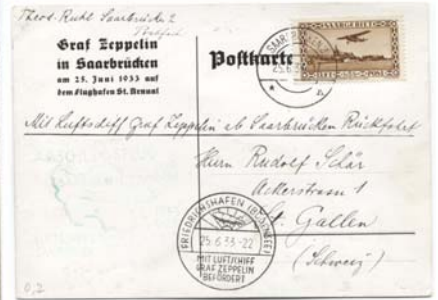 Theod. Ruhl Saarbrücken 2
Postfach
Graf Zeppelin
in Saarbrücken
am 25. Juni 1933 auf
dem Flughafen St. Arnual
Postkarte
SAARGEBIET
POST
SAARBRÜCKEN
25.6.33
Mit Luftschiff Graf Zeppelin ab Saarbrücken Rückfahrt
Herrn Rudolf Schär
Ackerstrasse 1
St. Gallen
(Schweiz)
FRIEDRICHSHAFEN (BODENSEE)
25.6.33-22
MIT LUFTSCHIFF
GRAF ZEPPELIN
BEFÖRDERT
0,2